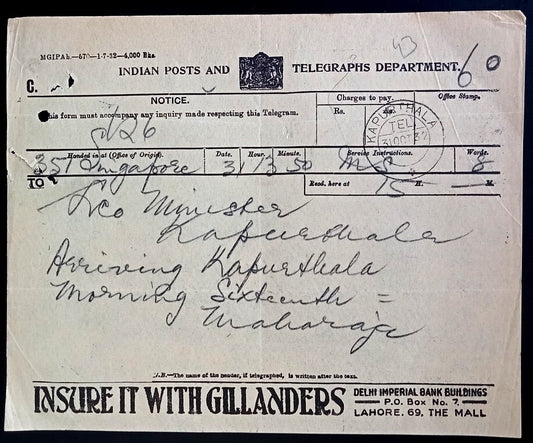 MGIPAh.—670—1-7-32—4,000 Bks.
43
C.
INDIAN POSTS AND TELEGRAPHS DEPARTMENT.
60
NOTICE.
This form must accompany any inquiry made respecting this Telegram.
Charges to pay.
Rs. As.
Office Stamp.
KAPURTHALA
TEL.
31 OCT 32
Handed in at (Office of Origin). Date. Hour. Minute. Service Instructions. Words.
Singapore 31 13 50 8
Recd. here at 15 H. M.
Minister
Kapurthala
Arriving Kapurthala
Morning Sixteenth =
Maharaja
N.B.—The name of the sender, if telegraphed, is written after the text.
INSURE IT WITH GILLANDERS
DELHI IMPERIAL BANK BUILDINGS
P.O. Box No. 7.
LAHORE, 69, THE MALL